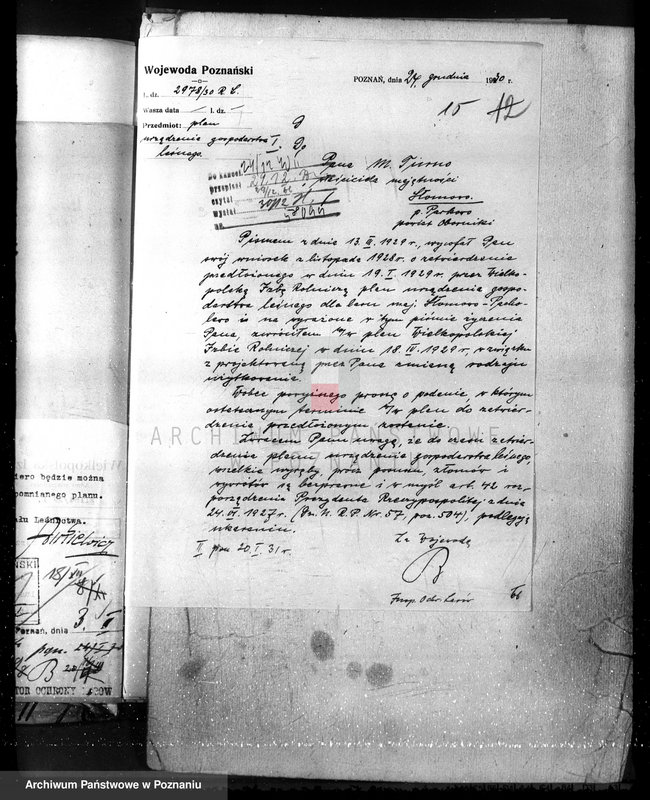 Wojewoda Poznański
POZNAŃ, dnia 24 grudnia 1930 r.
L. dz. 2978/30 R L
15 12
Wasza data / l. dz. /
Przedmiot: plan
urządzenia gospodarstwa
leśnego.
Do
Pana M. Turno
właściciela majętności
Słomowo
p. Parkowo
powiat Oborniki
Do kancel.
przepisał
czytał
wysłał
Pismem z dnia 13. III. 1929 r. wycofał Pan
swój wniosek z listopada 1928 r. o zatwierdzenie
przedłożonego w dniu 19. I. 1929 r. przez Wielko-
polską Izbę Rolniczą plan urządzenia gospo-
darstwa leśnego dla lasu maj. Słomowo-
i na wyrażone w tym piśmie życzenie
Pana, zwróciłem w/w plan Wielkopolskiej
Izbie Rolniczej w dniu 18. IV. 1929 r. w związku
z projektowaną przez Pana zmianą rodzaju
użytkowania.
Wobec powyższego proszę o podanie, w którym
ostatecznym terminie w/w plan do zatwier-
dzenia przedłożonym zostanie.
Zwracam Panu uwagę, że do czasu zatwier-
dzenia planu urządzenia gospodarstwa leśnego,
wszelkie wyręby, prócz posuszu, złomów i
wywrotów są bezprawne i w myśl art. 42 roz-
porządzenia Prezydenta Rzeczypospolitej z dnia
24. VI. 1927 r. (Dz. U. R. P. Nr. 57, poz. 504), podlegają
ukaraniu.
II pon 20. I. 31 r.
Za Wojewodę
Insp. Ochr. Lasów
iero będzie można
pomnianego planu.
ału Leśnictwa.
18/VII
Poznań, dnia 3. II
TOR OCHRONY LASÓW
ARCHIWUM PAŃSTWOWE
W POZNANIU
Archiwum Państwowe w Poznaniu